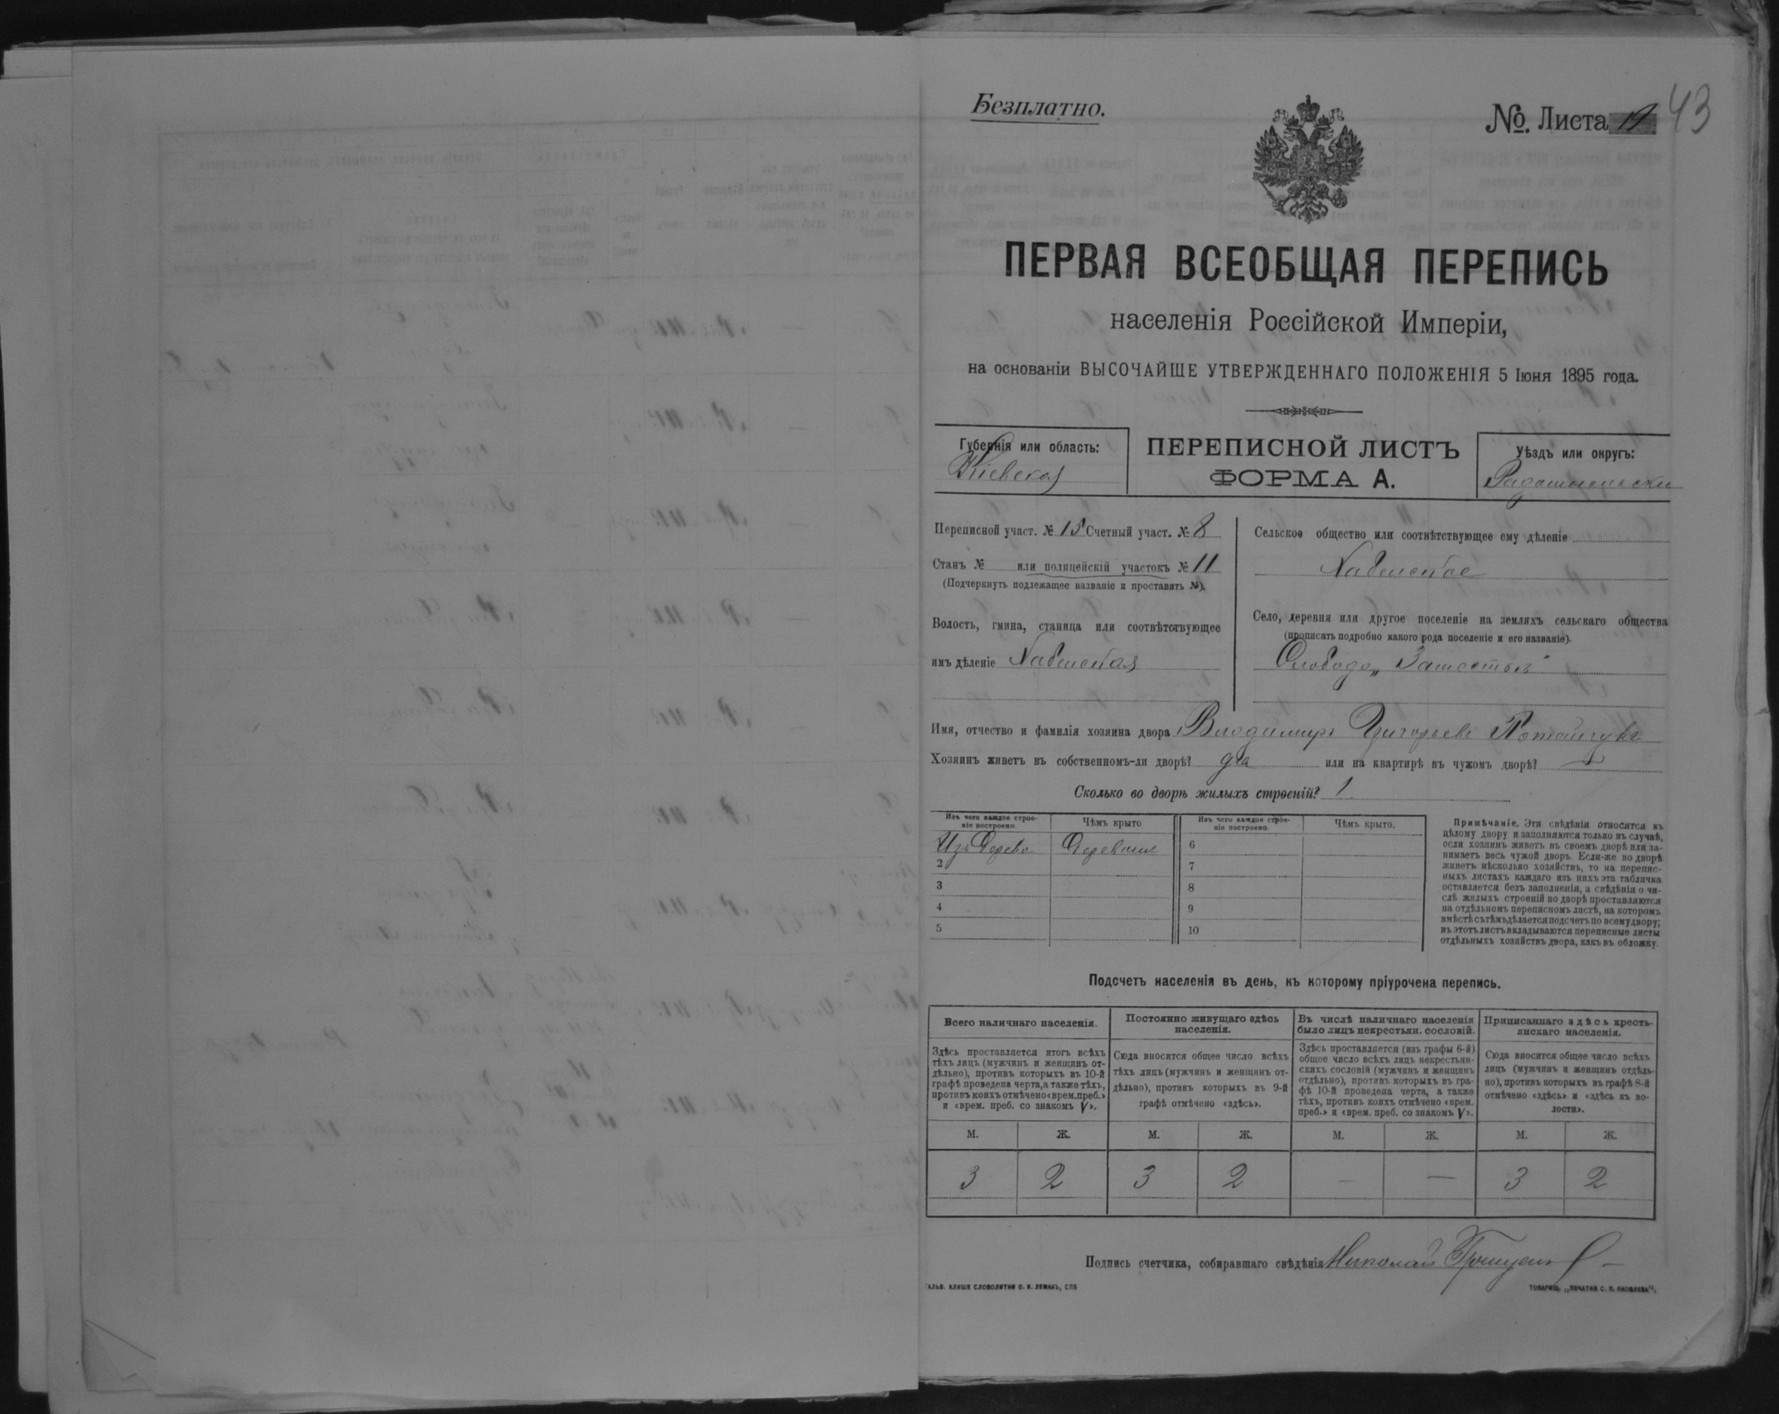 Безплатно.
№. Листа 19 43
ПЕРВАЯ ВСЕОБЩАЯ ПЕРЕПИСЬ
населенія Россійской Имперіи,
на основаніи ВЫСОЧАЙШЕ УТВЕРЖДЕННАГО ПОЛОЖЕНІЯ 5 Іюня 1895 года.
Губернія или область:
Кіевская
ПЕРЕПИСНОЙ ЛИСТЪ
ФОРМА А.
Уѣздъ или округъ:
Радомысльскій
Переписной участ. № 15 Счетный участ. № 8
Станъ № или полицейскій участокъ № 11
(Подчеркнуть подлежащее названіе и проставить №).
Волость, гмина, станица или соотвѣтствующее
имъ дѣленіе Хабенская
Сельское общество или соотвѣтствующее ему дѣленіе
Хабенское
Село, деревня или другое поселеніе на земляхъ сельскаго общества
(прописать подробно какого рода поселеніе и его названіе).
Слобода
Имя, отчество и фамилія хозяина двора Владимиръ Григорьевъ
Хозяинъ живетъ въ собственномъ-ли дворѣ? да или на квартирѣ въ чужомъ дворѣ? —
Сколько во дворѣ жилыхъ строеній? 1
Изъ чего каждое строе-
ніе построено.
Чѣмъ крыто
Изъ чего каждое строе-
ніе построено.
Чѣмъ крыто.
Изъ дерева
2
3
4
5
6
7
8
9
10
Примѣчаніе. Эти свѣдѣнія относятся къ
цѣлому двору и заполняются только въ случаѣ,
если хозяинъ живетъ въ своемъ дворѣ или за-
нимаетъ весь чужой дворъ. Если-же во дворѣ
живетъ нѣсколько хозяйствъ, то на перепис-
ныхъ листахъ каждаго изъ нихъ эта табличка
оставляется безъ заполненія, а свѣдѣнія о чи-
слѣ жилыхъ строеній во дворѣ проставляются
на отдѣльномъ переписномъ листѣ, на которомъ
вмѣстѣ съ тѣмъ дѣлается подсчетъ по всему двору;
въ этотъ листъ вкладываются переписные листы
отдѣльныхъ хозяйствъ двора, какъ въ обложку.
Подсчетъ населенія въ день, къ которому пріурочена перепись.
Всего наличнаго населенія.
Здѣсь проставляется итогъ всѣхъ
тѣхъ лицъ (мужчинъ и женщинъ от-
дѣльно), противъ которыхъ въ 10-й
графѣ проведена черта, а также тѣхъ,
противъ коихъ отмѣчено «врем. преб.»
и «врем. преб. со знакомъ V».
Постоянно живущаго здѣсь
населенія.
Сюда вносится общее число всѣхъ
тѣхъ лицъ (мужчинъ и женщинъ от-
дѣльно), противъ которыхъ въ 9-й
графѣ отмѣчено «здѣсь».
Въ числѣ наличнаго населенія
было лицъ некрестьян. сословій.
Здѣсь проставляется (изъ графы 6-й)
общее число всѣхъ лицъ некрестьян-
скихъ сословій (мужчинъ и женщинъ
отдѣльно), противъ которыхъ въ гра-
фѣ 10-й проведена черта, а также
тѣхъ, противъ коихъ отмѣчено «врем.
преб.» и «врем. преб. со знакомъ V».
Приписаннаго здѣсь кресть-
янскаго населенія.
Сюда вносится общее число всѣхъ
лицъ (мужчинъ и женщинъ отдѣль-
но), противъ которыхъ въ графѣ 8-й
отмѣчено «здѣсь» и «здѣсь въ во-
лости».
М. Ж. М. Ж. М. Ж. М. Ж.
3 2 3 2 — — 3 2
Подпись счетчика, собиравшаго свѣдѣнія Николай